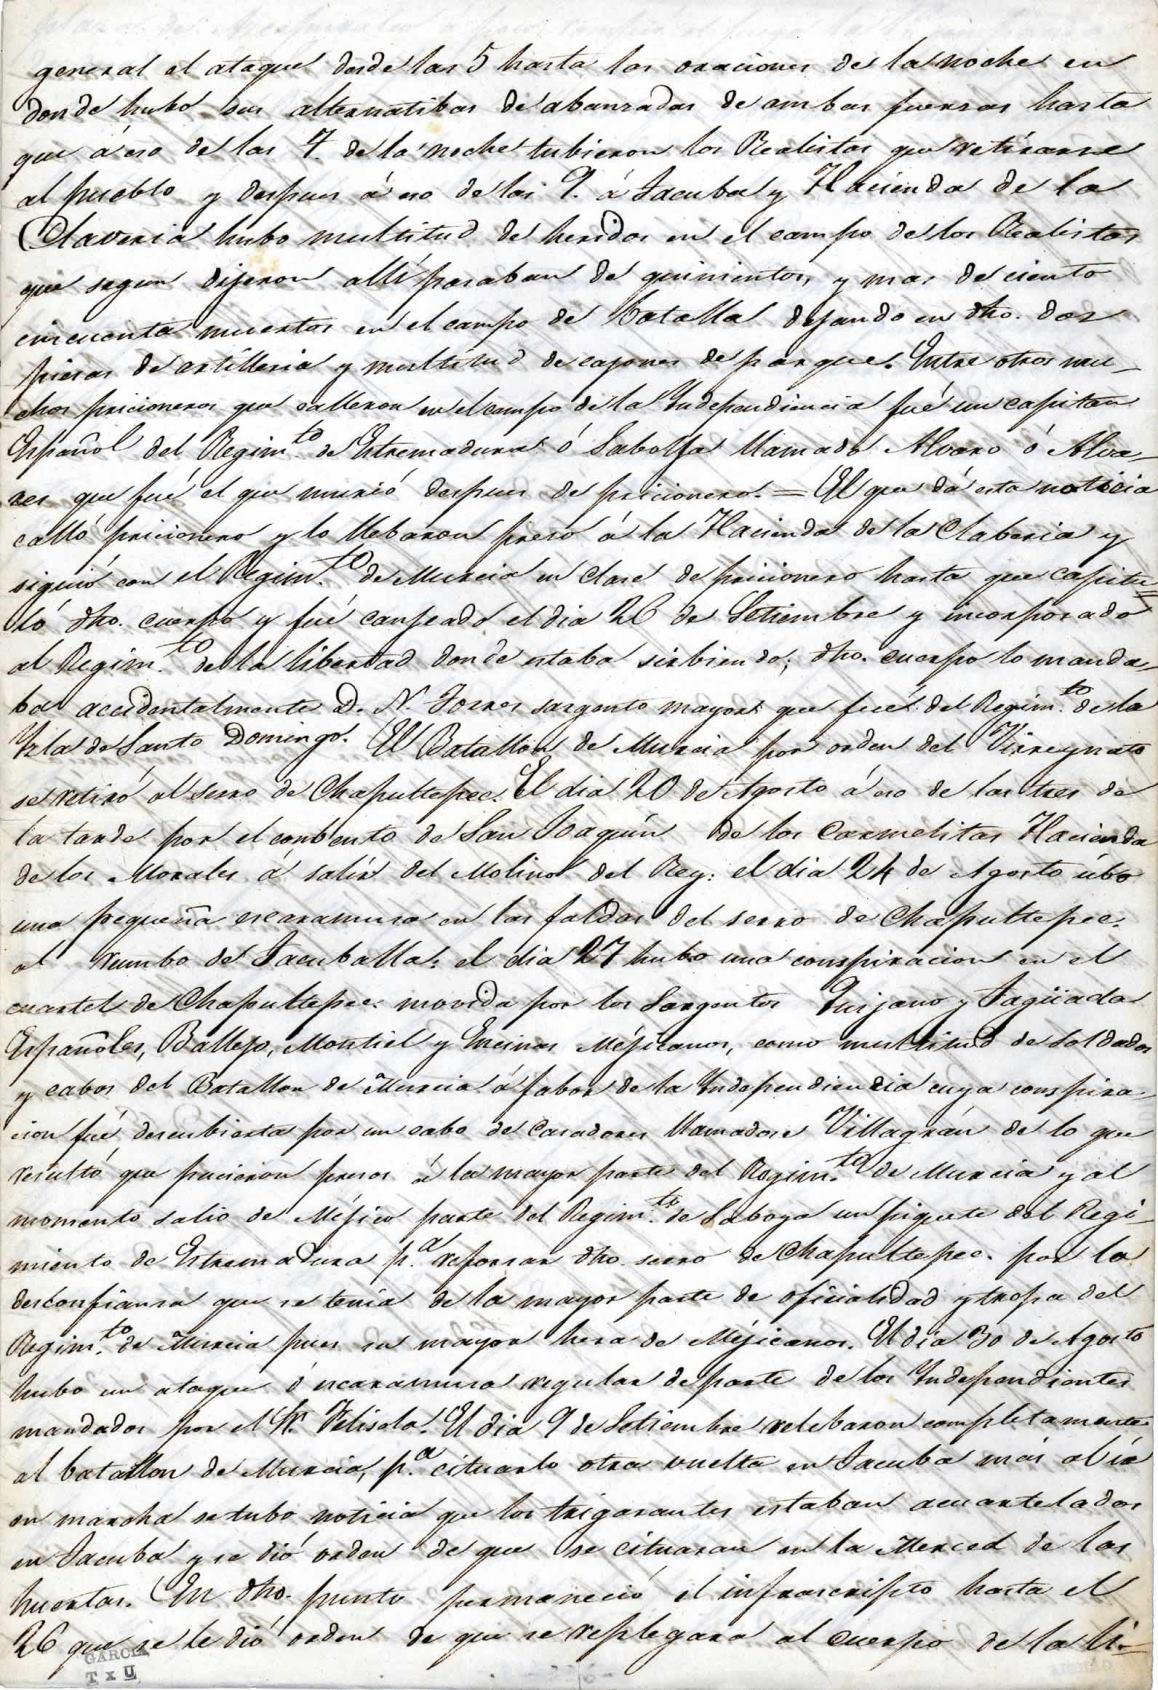 general el ataque desde las 5 hasta las oraciones de la noche en
donde hubo sus alternatibas de abanzadas de ambas fuerzas hasta
que á eso de las 7. de la noche tubieron los Realistas que retirarse
al pueblo y despues á eso de las 9. á Tacuba y Hacienda de la
Claveria hubo multitud de heridos en el campo de los Realistas
que segun dijeron alli pasaban de quinientos, y mas de ciento
cincuenta muertos en el campo de batalla dejando en dho. dos
piesas de artilleria y multitud de cajones de parque. Entre otros mu-
chos pricioneros que calleron en el campo de la Independiencia fué un capitan
Español del Regim.to de Estremadura ó Saboya llamado Alvaro ó Alva-
res que fué el que murió despues de pricionero. = El que dá esta noticia
calló pricionero y lo llebaron preso á la Hacienda de la Claberia y
siguió con el Regim.to de Murcia en clase de pricionero hasta que capitu=
ló dho. cuerpo y fué canjeado el dia 26 de Setiembre y incorporado
al Regim.to de la libertad donde estaba sirbiendo; dho. cuerpo lo manda-
ba accidentalmente D. N. Torres sargento mayor que fué del Regim.to de la
Ysla de Santo Domingo. El Batallon de Murcia por orden del Virreynato
se retiró al serro de Chapultepec. El dia 20 de Agosto á eso de las tres de
la tarde por el conbento de San Joaquín de los Carmelitas Hacienda
de los Morales á salir del Molino del Rey: el dia 24 de Agosto úbo
una pequeña escaramusa en las faldas del serro de Chapultepec.
al rumbo de Tacuballa: el dia 27 hubo una conspiracion en el
cuartel de Chapultepec. movida por los Sargentos Quijano y Tagüada
Españoles, Ballejo, Montiel y Encinas Méjicanos, como multitud de soldados
y cabos del Batallon de Murcia á fabor de la Yndependiendia cuya conspira-
cion fué descubierta por un cabo de casadores llamadose Villagrán de lo que
resultó que pucieron presos á la mayor parte del Regim.to de Murcia y al
momento salio de Méjico parte del Regim.to de Saboya un piquete del Regi-
miento de Estremadura p.a reforsar dho. serro de Chapultepec. por la
desconfiansa que se tenia de la mayor parte de oficialidad y tropa del
Regim.to de Murcia pues su mayor hera de Méjicanos. El dia 30 de Agosto
hubo un ataque ó escaramusa regular de parte de los Yndependientes
mandados por el Sr. Filisola. El dia 9 de Setiembre relebaron completamente
al batallon de Murcia, p.a cituarlo otra vuelta en Tacuba mas al ir
en marcha se tubo noticia que los trigarantes estaban acuartelados
en Tacuba y se dió orden de que se cituaran en la Merced de las
huertas. En dho. punto permaneció el infrascripto hasta el
26 que se le dió orden de que se replegara al cuerpo de la li-
GARCIA
T x U